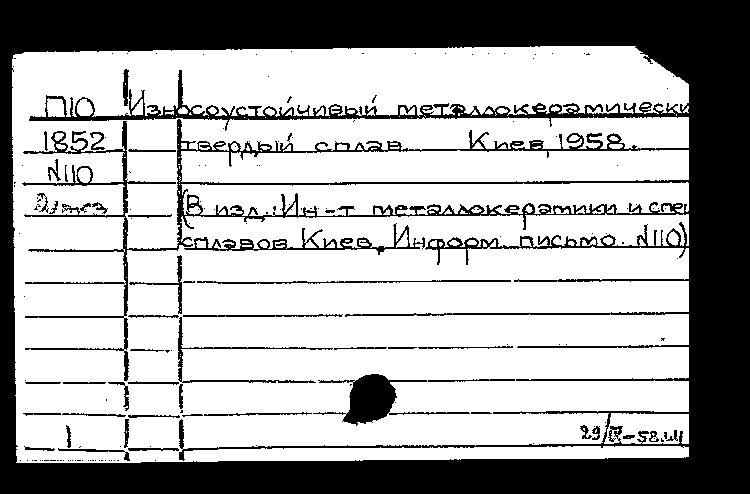 П10 Износоустойчивый металлокерамически
1852 твердый сплав Киев, 1958.
N110
(В изд.: Ин-т металлокератики и спец
сплавов. Киев, Информ. письмо. N110)
1 29/IX-58